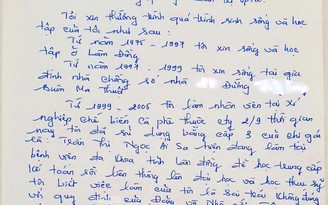 Tôi xin tường trình quá trình sinh sống và học
tập của tôi như sau :
Từ năm 1975 - 1997 tôi xin sống và học
tập ở Lâm Đồng
Từ năm 1997 - 1999 tôi xin sống tại gia
đình nhà chồng số nhà đường
Buôn Ma Thuột
Từ 1999 - 2005 tôi làm nhân viên tại Xí
nghiệp chế biến Cà phê thuộc cty 2/9 thời gian
này tôi đã sử dụng bằng cấp 3 của chị gái
là : Trần Thị Ngọc Ái Sa hiện đang làm tại
bệnh viện đa khoa tỉnh Lâm đồng để học trung cấp
kế toán rồi liên thông lên đại học và học thạc sỹ
tôi biết việc làm của tôi là sai trái không đúng
với quy định của Đảng và Nhà